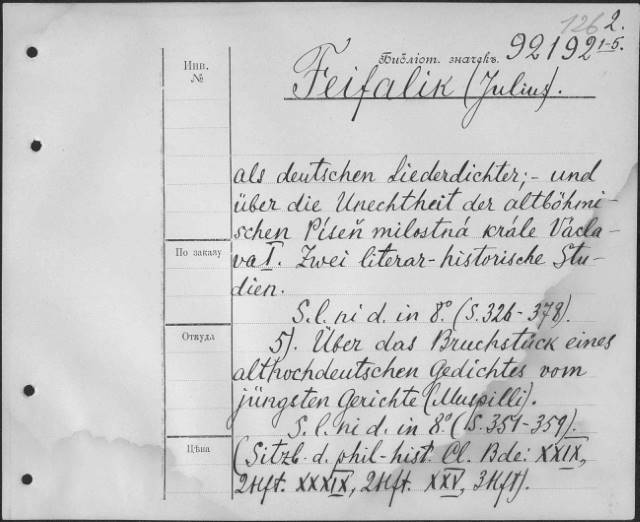 126 2.
Библіот. значекъ. 92192 1-5.
Инв.
№
Feifalik (Julius).
als deutschen Liederdichter; - und
über die Unechtheit der altböhmi-
schen Píseň milostná krále Václa-
va I. Zwei literar-historische Stu-
dien.
По заказу
S. l. ni d. in 8.° (S. 326-378).
Откуда
5). Über das Bruchstück eines
althochdeutschen Gedichtes vom
jüngsten Gerichte (Muspilli).
S. l. ni d. in 8.° (S. 351-359).
Цѣна
(Sitzb. d. phil-hist. Cl. Bde: XXIX,
2Hft. XXXIX, 2Hft. XXV, 3Hft).